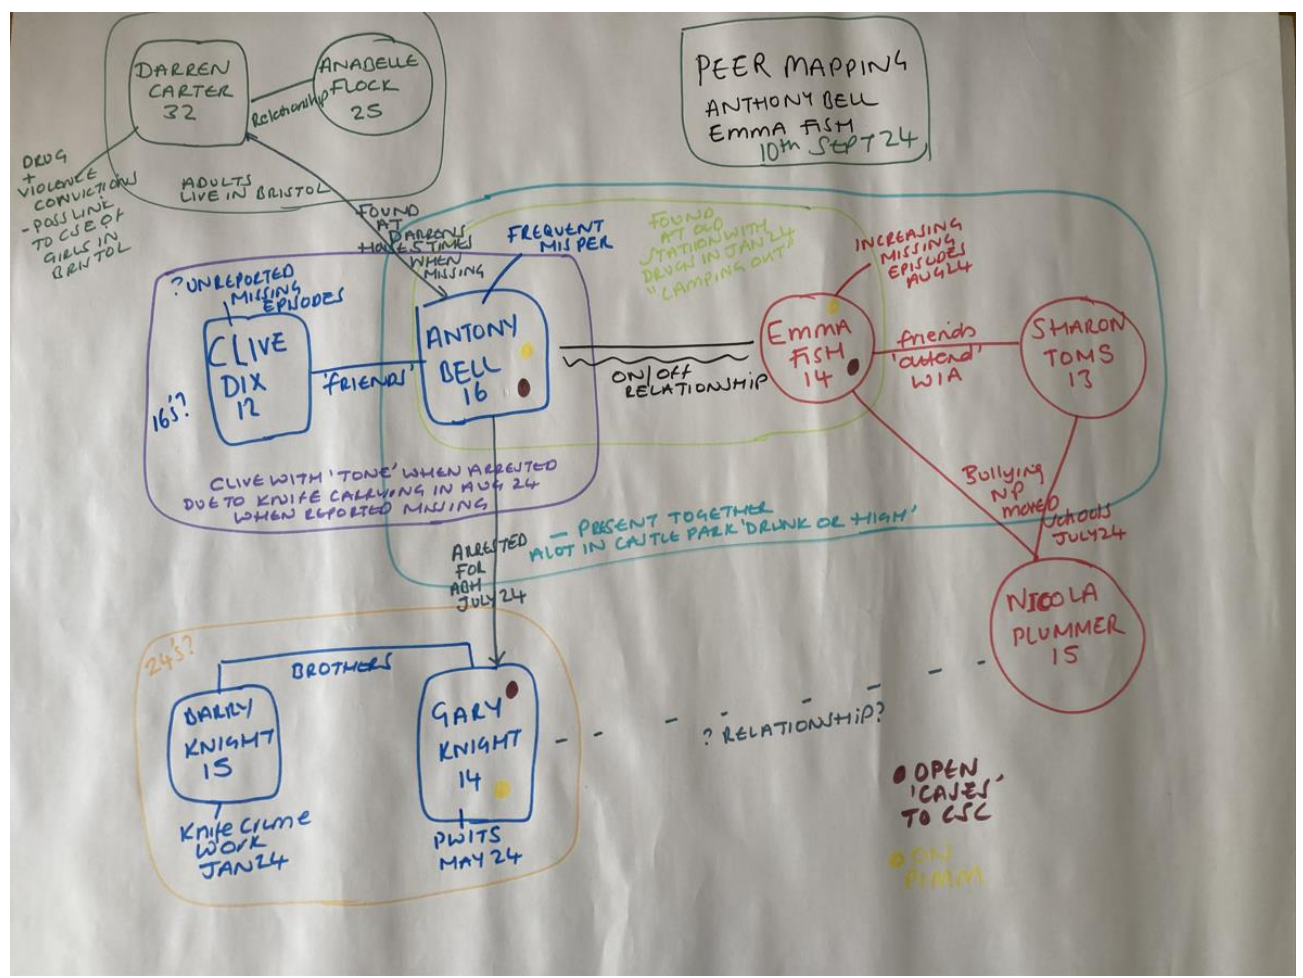 DARREN
CARTER
32
Relationship
ANABELLE
FLOCK
25
ADULTS
LIVE IN BRISTOL
DRUG
+
VIOLENCE
CONVICTIONS
- POSS LINK
TO CSE OF
GIRLS IN
BRISTOL
PEER MAPPING
ANTHONY BELL
EMMA FISH
10th SEPT 24
FOUND
AT
DARRENS
HOUSE 5 TIMES
WHEN
MISSING
FREQUENT
MISPER
FOUND
AT OLD
STATION WITH
DRUGS IN JAN 24
"CAMPING OUT"
INCREASING
MISSING
EPISODES
AUG 24
? UNREPORTED
MISSING
EPISODES
16s'?
CLIVE
DIX
12
'FRIENDS'
ANTONY
BELL
16
ON/OFF
RELATIONSHIP
EMMA
FISH
14
friends
'attend'
WIA
SHARON
TOMS
13
CLIVE WITH 'TONE' WHEN ARRESTED
DUE TO KNIFE CARRYING IN AUG 24
WHEN REPORTED MISSING
- PRESENT TOGETHER
ALOT IN CASTLE PARK 'DRUNK OR HIGH'
Bullying
NP
moved
schools
JULY 24
ARRESTED
FOR
ABH
JULY 24
NICOLA
PLUMMER
15
24's?
BROTHERS
BARRY
KNIGHT
15
Knife Crime
WORK
JAN 24
GARY
KNIGHT
14
PWITS
MAY 24
? RELATIONSHIP?
OPEN
'CASES'
TO CSC
ON
PIMM